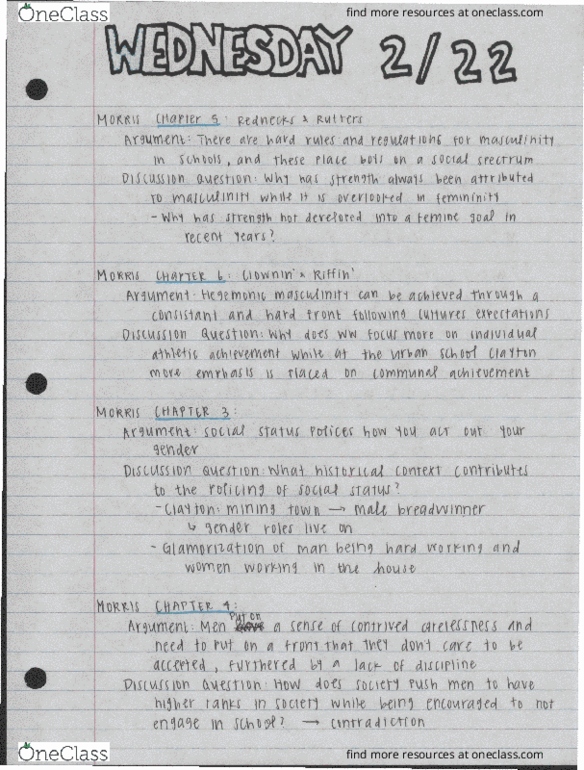 OneClass
find more resources at oneclass.com
WEDNESDAY 2/22
MORRIS Chapter 5: Rednecks & Rutters
Argument: There are hard rules and regulations for masculinity
in schools, and these place boys on a social spectrum
Discussion Question: Why has strength always been attributed
to masculinity while it is overlooked in femininity
- Why has strength not developed into a femine goal in
recent years?
MORRIS Chapter 6: Clownin' & Riffin'
Argument: Hegemonic masculinity can be achieved through a
consistant and hard front following cultures expectations
Discussion Question: Why does WW focus more on individual
athletic achievement while at the urban school Clayton
more emphasis is placed on communal achievement
MORRIS CHAPTER 3:
Argument: social status polices how you act out your
gender
Discussion Question: What historical context contributes
to the policing of social status?
- Clayton: mining town → male breadwinner
↳ gender roles live on
- Glamorization of man being hard working and
women working in the house
MORRIS CHAPTER 4:
Argument: Men put on a sense of contrived carelessness and
need to put on a front that they don't care to be
accepted, furthered by a lack of discipline
Discussion Question: How does society push men to have
higher ranks in society while being encouraged to not
engage in school? → contradiction
OneClass
find more resources at oneclass.com